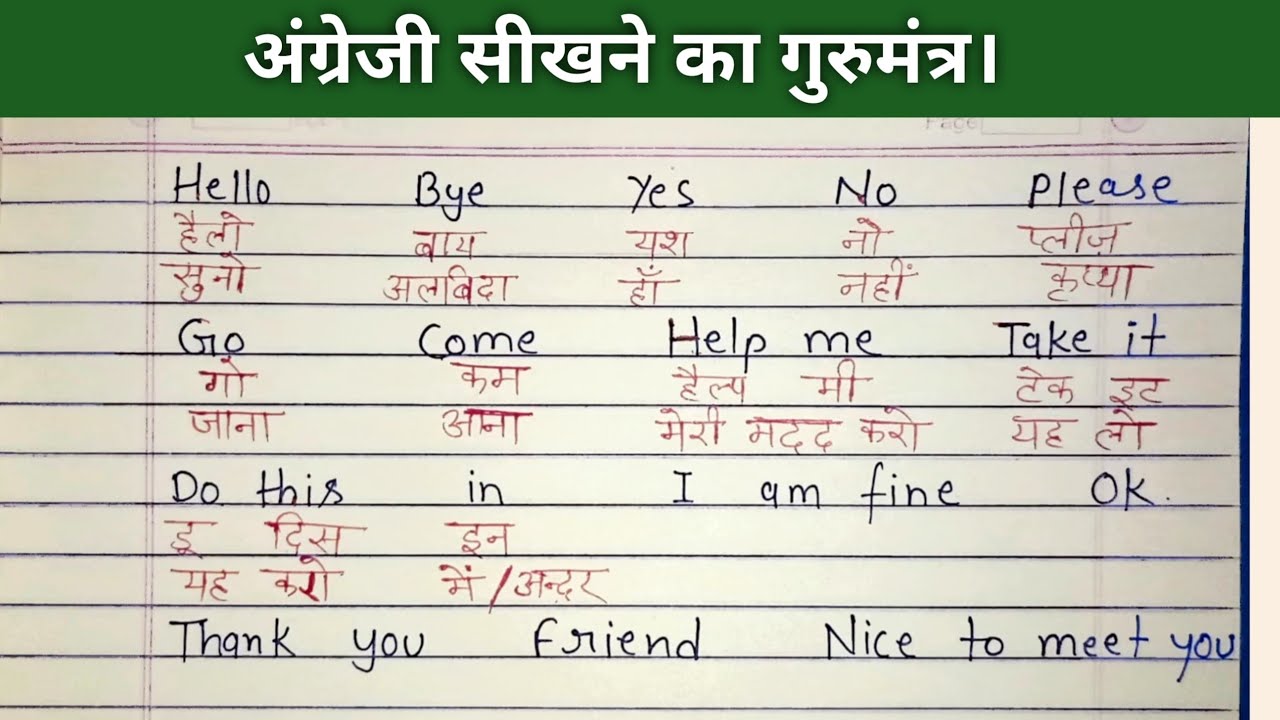 अंग्रेजी सीखने का गुरुमंत्र।
Page
Hello Bye Yes No Please
हैलो बाय यश नो प्लीज़
सुनो अलबिदा हाँ नहीं कृप्या
Go Come Help me Take it
गो कम हैल्प मी टेक इट
जाना आना मेरी मदद करो यह लो
Do this in I am fine Ok.
डू दिस इन
यह करो में/अन्दर
Thank you Friend Nice to meet you